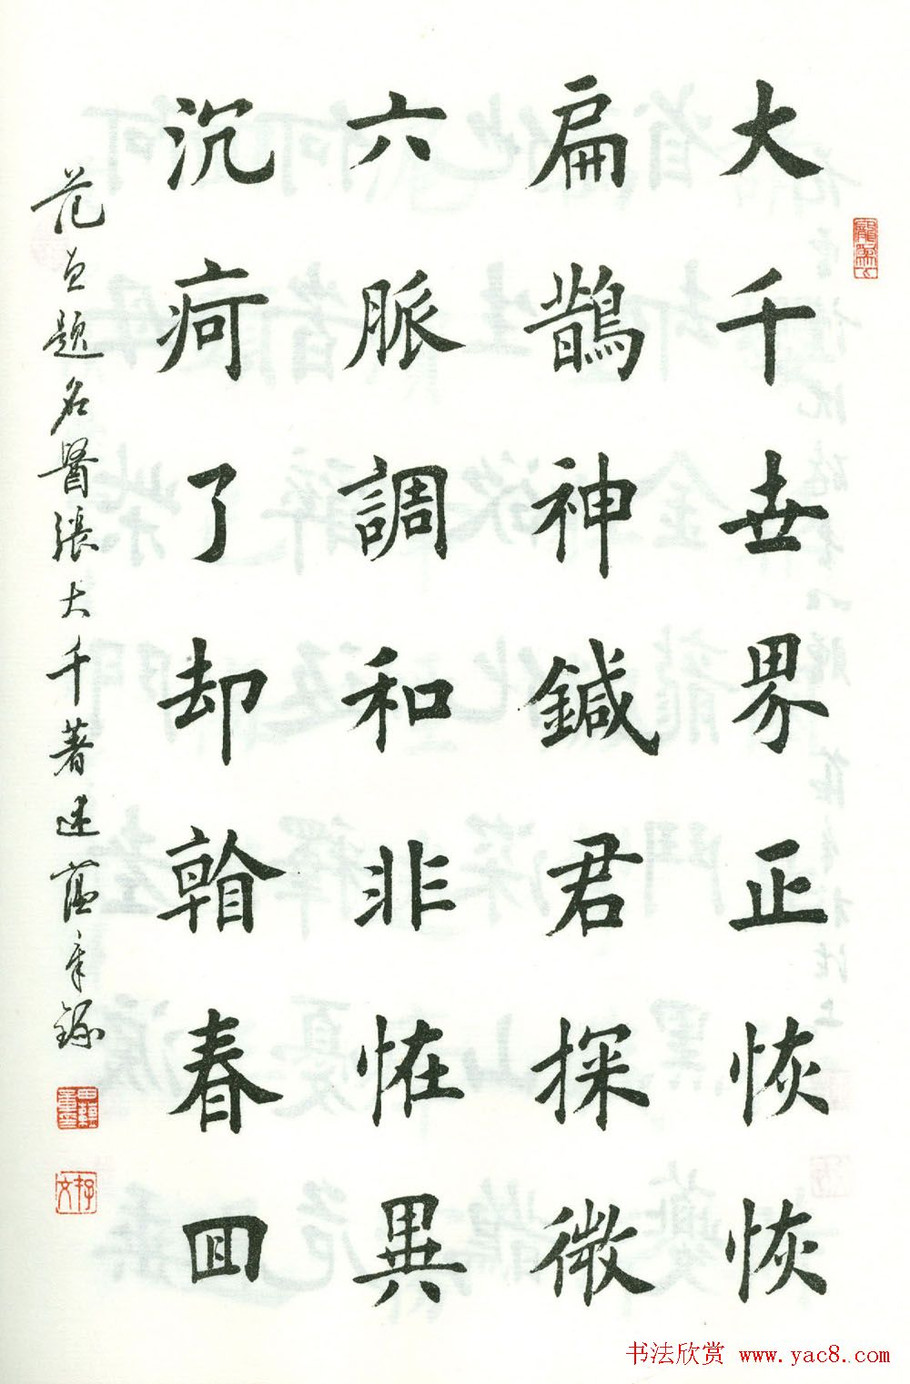 大千世界正恢恢
扁鵲神鍼君探微
六脈調和非怪異
沉疴了却斡春回
范曾題名醫張大千著述 蘊章錄
书法欣赏 www.yac8.com